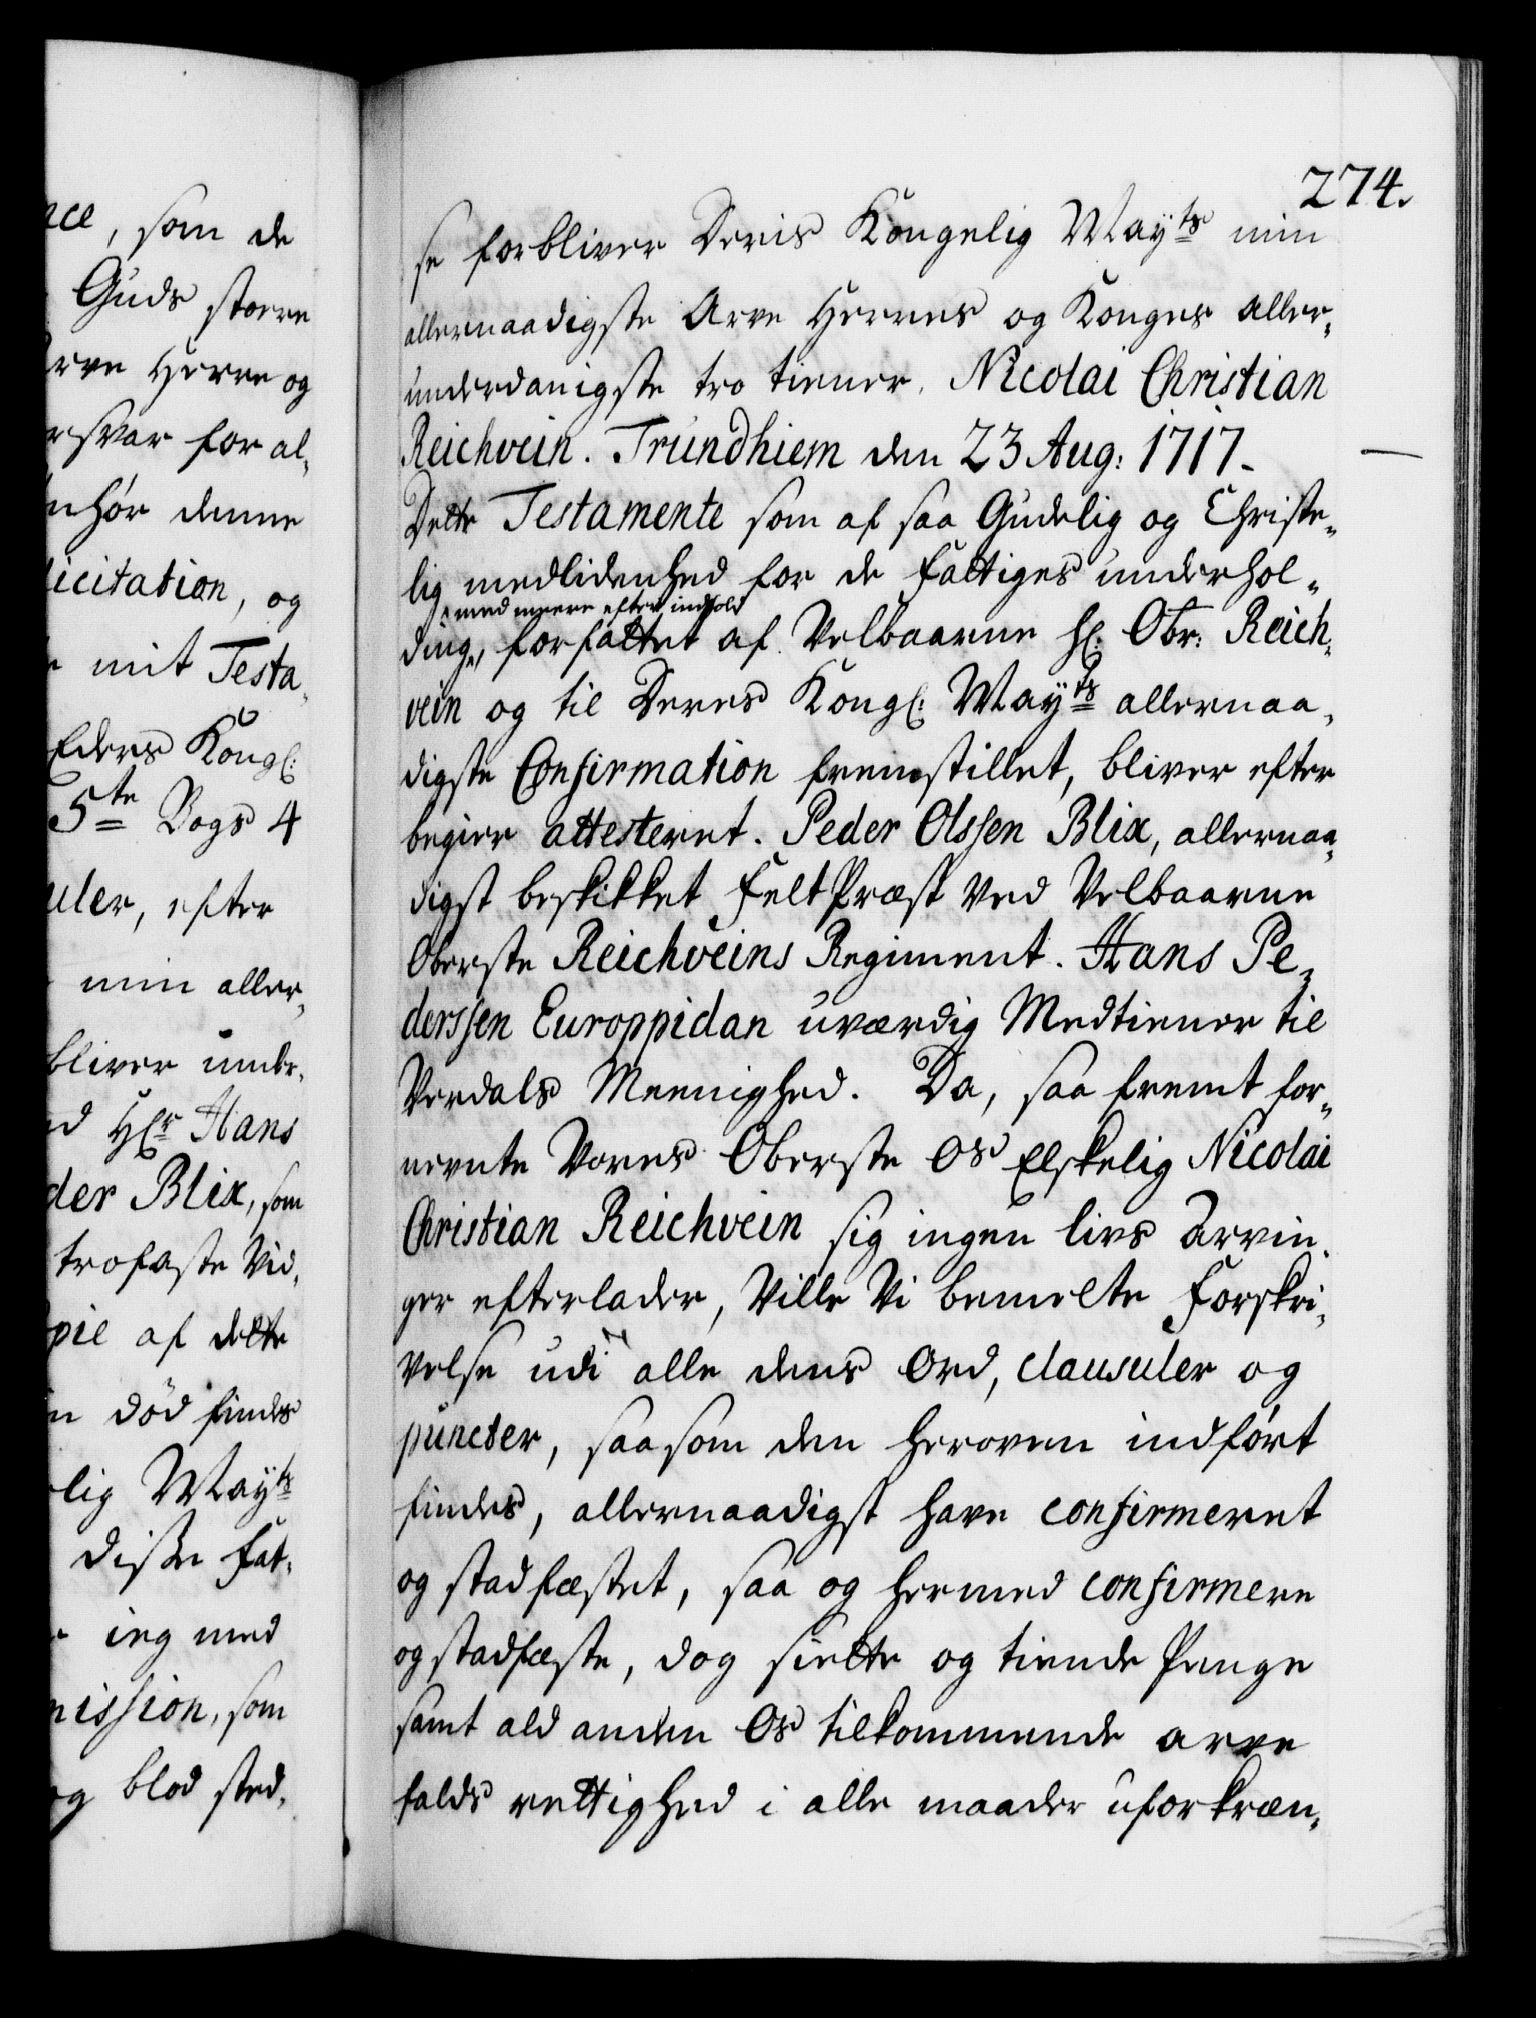 nce, som de
Guds storre
Arve Herre og
rsvar for al-
enhør denne
licitation, og
mit Testa-
Eders Kongl:
5te Bogs 4
uler, efter
min aller-
bliver under-
d Hlr Hans
der Blix, som
trofaste Vid-
pie af dette
n død findes
lig Mayts
disse fat-
ieg med
mission, som
og blod sted-
274.
se forbliver Deris Kongelig Mayts min
allernaadigste Arve Herres og Konges aller-
underdanigste tro tiener. Nicolai Christian
Reichvein. Trundhiem den 23 Aug: 1717.
Dette Testamente som af saa Gudelig og Christe-
lig medlidenhed for de fattiges underhol-
med meere efter indhold
ding, forfattet af Velbaarne Hl: Obr: Reich-
vein og til Deres Kongl: Mayts allernaa-
digste Confirmation fremstillet, bliver efter
begier attesteret. Peder Olssen Blix, allernaa-
digst beskikket feltPræst ved Velbaarne
Oberste Reichveins Regiment. Hans Pe-
derssen Europpidan uværdig Medtiener til
Verdals Meenighed. Da, saa fremt for-
nevnte Vores Oberste Os Elskelig Nicolai
Christian Reichvein sig ingen livs Arvin-
ger efterlader, Ville Vi bemelte Forskri-
velse udi alle dens Ord, clausuler og
puncter, saasom den heroven indført
findes, allernaadigst have confirmeret
og stadfæstet, saa og hermed confirmere
og stadfæste, dog siette og tiende Penge
samt ald anden Os tilkommende arve
falds rettighed i alle maader uforkræn-